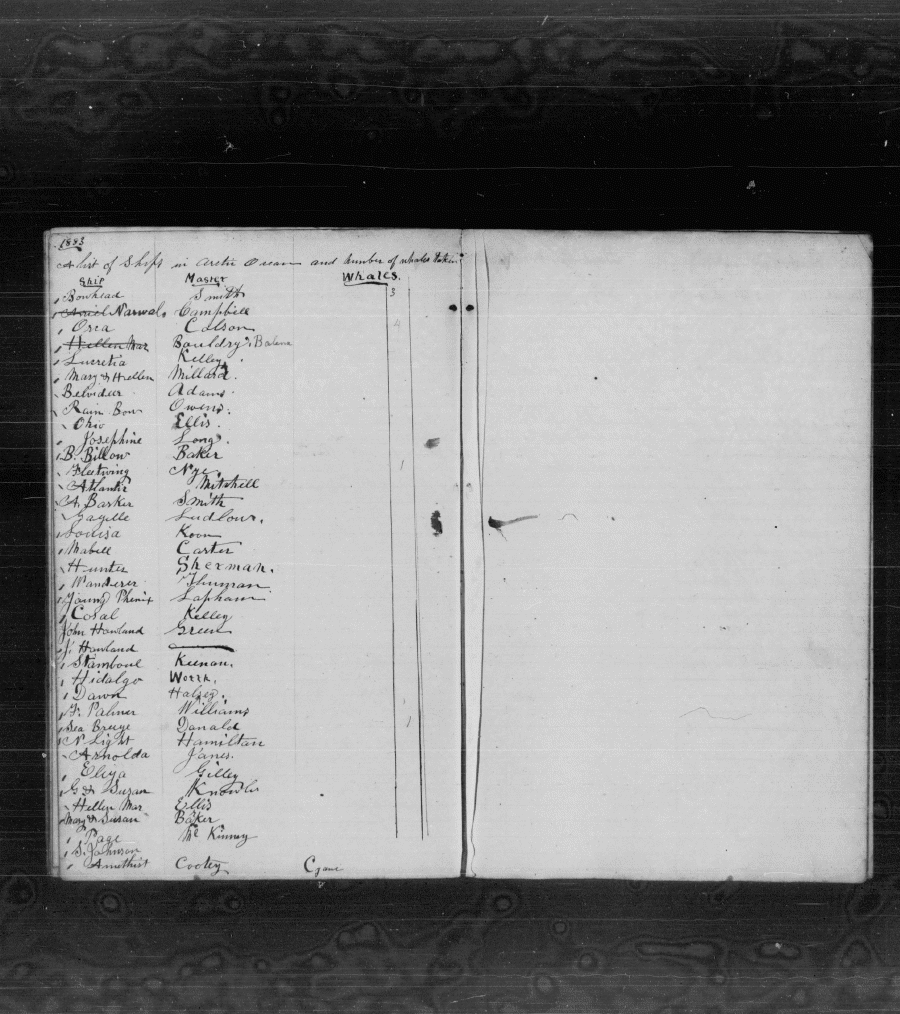 1883
A list of Ships in Arctic Ocean and number of whales taken
Ship Master Whales.
Bowhead Smith 3
Narwal Campbell
Orca Colson 4
Hellen Mar Bouldry Balena
Lucretia Kelley
Mary & Hellen Millard.
Belvideer Adams
Rain Bow Owens.
Ohio Ellis.
Josephine Long.
B. Billow Baker 1
Fleetwing Nye
Atlantic Mitchell
A Barker Smith
Gazelle Ludlow.
Louisa Koon
Mabell Carter
Hunter Sherman.
Wanderer Thurman
Young Phenix Lapham
Cosal Kelley
John Howland Green
J. Howland
Stamboul Keenan.
Hidalgo Worth.
Dawn Halsey.
F. Palmer Williams
Sea Breeze Danald 1
N Light Hamilton
Arnolda Janes.
Eliza Gilley
G & Susan Knowles
Hellen Mar Ellis
Mary & Susan Baker
Page Mc Kinney
S. Johnson
Amethist Cootey